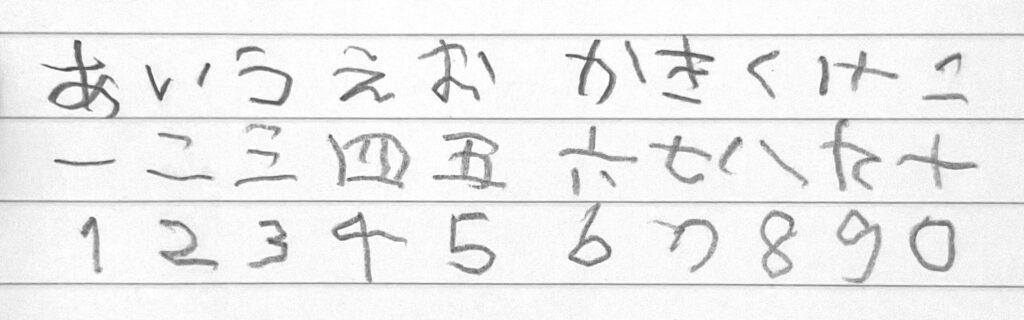 あいうえお かきくけこ
一二三四五 六七八九十
12345 67890